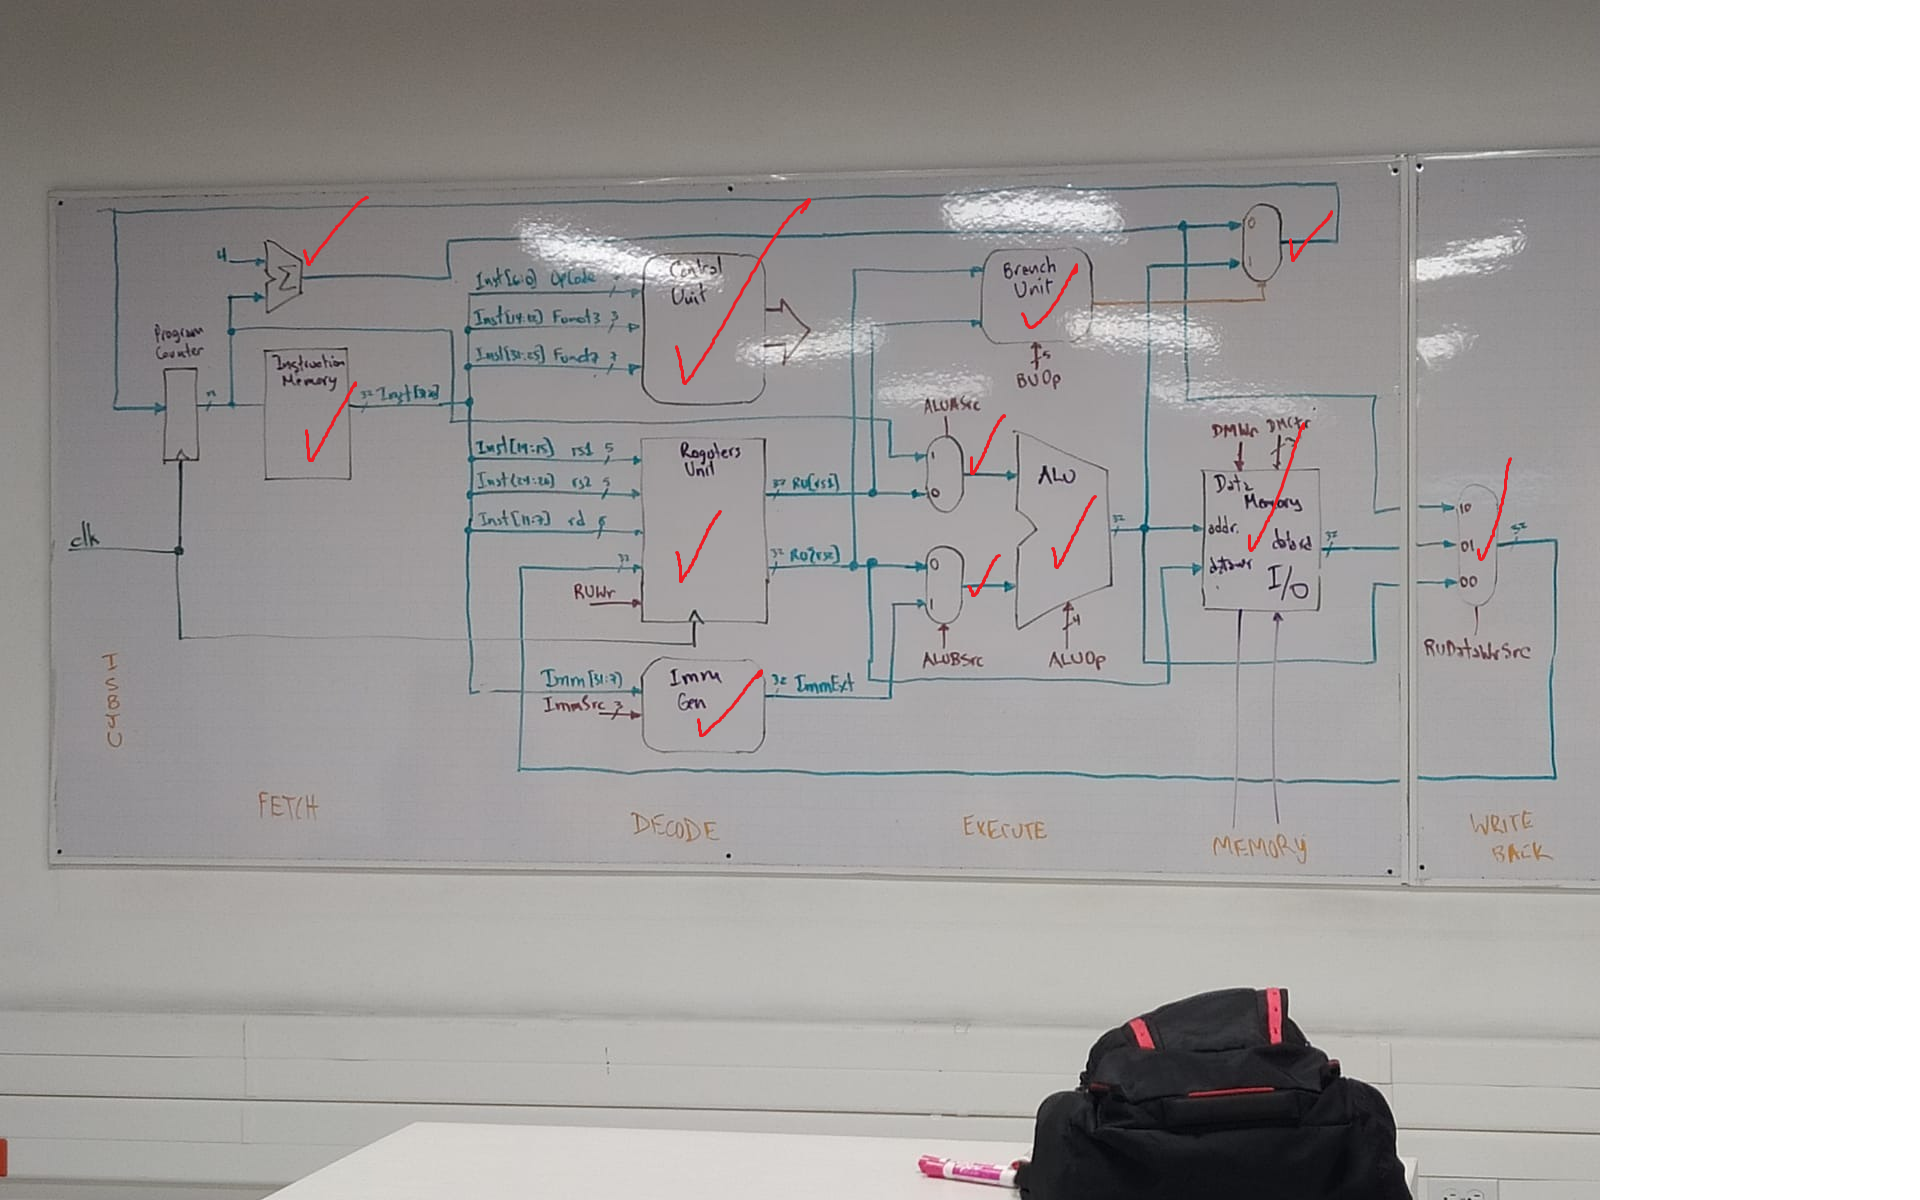 4
Σ
Program
Counter
Instruction
Memory
32
clk
I
S
B
J
U
Inst[6:0] OpCode
Inst[14:12] Funct3 3
Inst[31:25] Funct7 7
Control
Unit
Inst[19:15] rs1 5
Inst[24:20] rs2 5
Inst[11:7] rd 5
32
RUWr
Registers
Unit
32 RU[rs1]
32 RU[rs2]
Imm[31:7]
ImmSrc 3
Imm
Gen
32 ImmExt
Branch
Unit
5
BUOp
ALUASrc
1
0
0
1
ALUBSrc
ALU
4
ALUOp
32
0
1
DMWr DMCtr
3
Data
Memory
addr.
datard
datawr
I/O
32
10
01
00
32
RUDataWrSrc
FETCH
DECODE
EXECUTE
MEMORY
WRITE
BACK